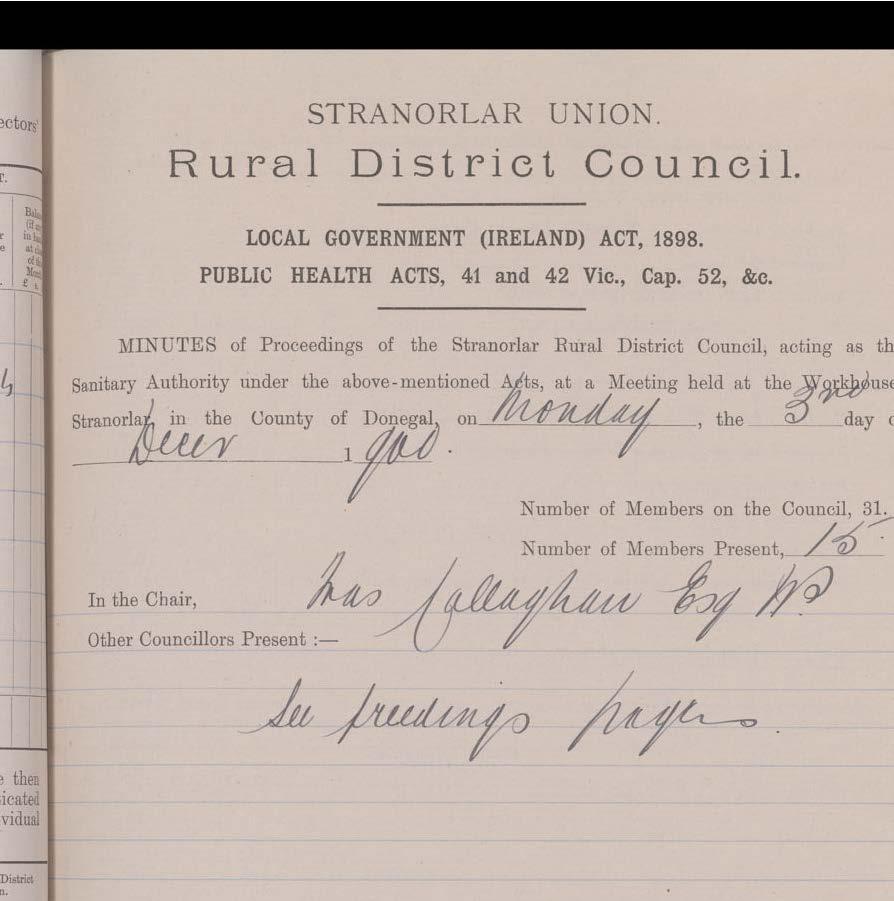 STRANORLAR UNION.
Rural District Council.
LOCAL GOVERNMENT (IRELAND) ACT, 1898.
PUBLIC HEALTH ACTS, 41 and 42 Vic., Cap. 52, &c.
MINUTES of Proceedings of the Stranorlar Rural District Council, acting as th
Sanitary Authority under the above-mentioned Acts, at a Meeting held at the Workhouse
Stranorlar, in the County of Donegal, on Monday, the 3rd day o
Decer 1900.
Number of Members on the Council, 31.
Number of Members Present, 15
In the Chair, Callaghan Esq
Other Councillors Present :—
See pages.
ectors'
T.
Bala
(if an
in ha
at cl
of th
Mont
£ s.
e then
icated
vidual
District
n.